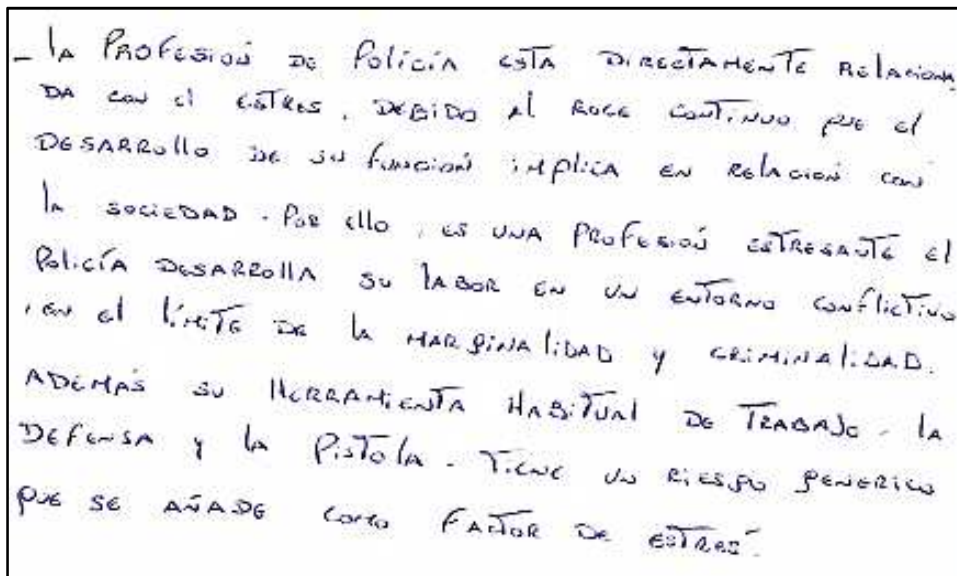 - LA PROFESIÓN DE POLICÍA ESTA DIRECTAMENTE RELACIONA
DA CON EL ESTRES, DEBIDO AL ROCE CONTINUO QUE EL
DESARROLLO DE SU FUNCIÓN IMPLICA EN RELACIÓN CON
LA SOCIEDAD. POR ELLO, ES UNA PROFESIÓN ESTRESANTE EL
POLICÍA DESARROLLA SU LABOR EN UN ENTORNO CONFLICTIVO
, EN EL LÍMITE DE LA MARGINALIDAD Y CRIMINALIDAD.
ADEMÁS SU HERRAMIENTA HABITUAL DE TRABAJO - LA
DEFENSA Y LA PISTOLA - TIENE UN RIESGO GENERICO
QUE SE AÑADE COMO FACTOR DE ESTRÉS.